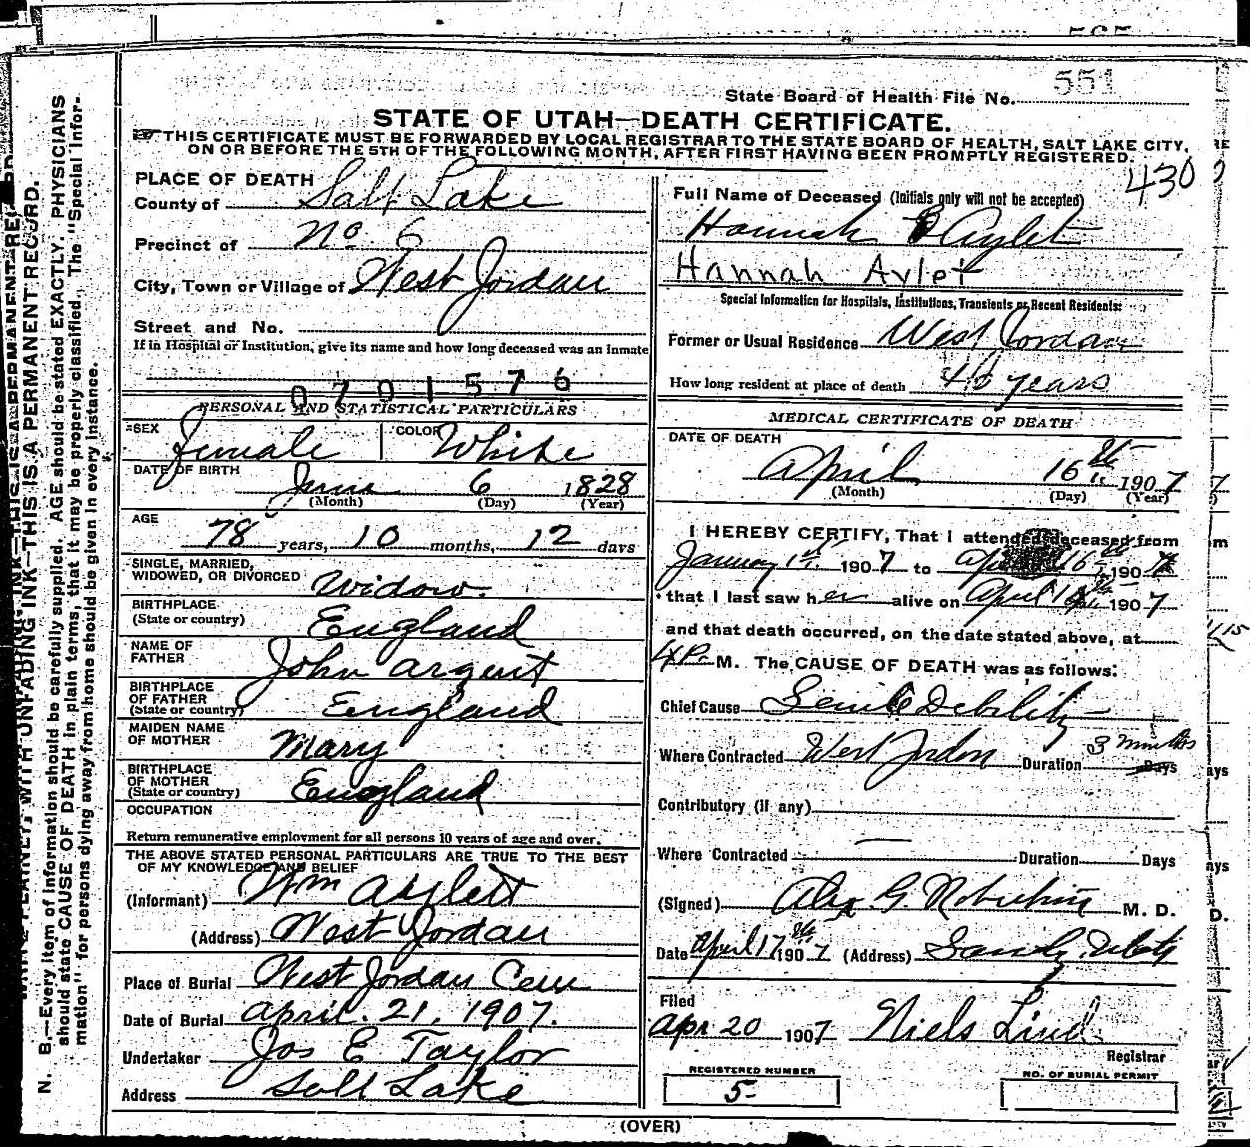 551
State Board of Health File No.
STATE OF UTAH—DEATH CERTIFICATE.
THIS CERTIFICATE MUST BE FORWARDED BY LOCAL REGISTRAR TO THE STATE BOARD OF HEALTH, SALT LAKE CITY,
ON OR BEFORE THE 5TH OF THE FOLLOWING MONTH, AFTER FIRST HAVING BEEN PROMPTLY REGISTERED.
430
PLACE OF DEATH
County of Salt Lake
Precinct of No. 6
City, Town or Village of West Jordan
Street and No.
If in Hospital or Institution, give its name and how long deceased was an Inmate
0701576
PERSONAL AND STATISTICAL PARTICULARS
SEX Female COLOR White
DATE OF BIRTH
June 6 1828
(Month) (Day) (Year)
AGE
78 years, 10 months, 12 days
SINGLE, MARRIED,
WIDOWED, OR DIVORCED Widow.
BIRTHPLACE
(State or country) England
NAME OF
FATHER John Argent
BIRTHPLACE
OF FATHER
(State or country) England
MAIDEN NAME
OF MOTHER Mary
BIRTHPLACE
OF MOTHER
(State or country) England
OCCUPATION
Return remunerative employment for all persons 10 years of age and over.
THE ABOVE STATED PERSONAL PARTICULARS ARE TRUE TO THE BEST
OF MY KNOWLEDGE AND BELIEF
(Informant) Wm Aylett
(Address) West Jordan
Place of Burial West Jordan Cem
Date of Burial April. 21, 1907.
Undertaker Jos E Taylor
Address Salt Lake
Full Name of Deceased (Initials only will not be accepted)
Hannah Aylet
Hannah Aylet
Special Information for Hospitals, Institutions, Transients or Recent Residents:
Former or Usual Residence West Jordan
How long resident at place of death years
MEDICAL CERTIFICATE OF DEATH
DATE OF DEATH
April 16th 1907
(Month) (Day) (Year)
I HEREBY CERTIFY, That I attended deceased from
January 1st. 1907 to 16th 190
that I last saw her alive on April 1907
and that death occurred, on the date stated above, at
4 P. M. The CAUSE OF DEATH was as follows:
Chief Cause Senile Debility
Where Contracted West Jordan Duration 3 months Days
Contributory (if any)
Where Contracted — Duration Days
(Signed) Alex. G. M. D.
Date April 17th 1907 (Address) Sandy, Utah
Filed
Apr 20 1907 Niels Lind.
Registrar
REGISTERED NUMBER
5
NO. OF BURIAL PERMIT
(OVER)
WITH UNFADING INK—THIS IS A PERMANENT RECORD.
N. B.—Every item of Information should be carefully supplied. AGE should be stated EXACTLY. PHYSICIANS
should state CAUSE OF DEATH in plain terms, that it may be properly classified. The "Special Infor-
mation" for persons dying away from home should be given in every instance.